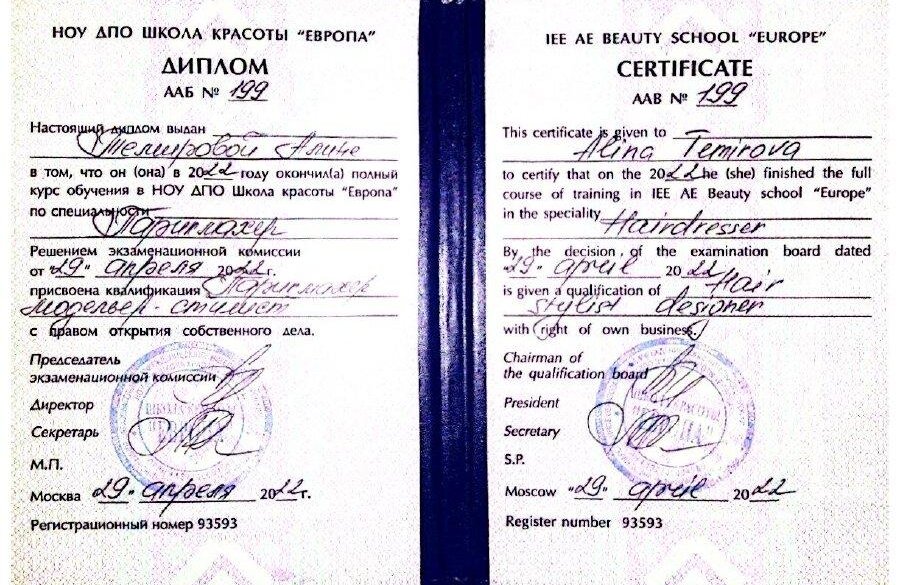 НОУ ДПО ШКОЛА КРАСОТЫ "ЕВРОПА"
ДИПЛОМ
ААБ № 199
Настоящий диплом выдан
Темировой Алине
в том, что он (она) в 2022 году окончил(а) полный
курс обучения в НОУ ДПО Школа красоты "Европа"
по специальности
Парикмахер
Решением экзаменационной комиссии
от "29" апреля 2022 г.
присвоена квалификация Парикмахер
модельер-стилист
с правом открытия собственного дела.
Председатель
экзаменационной комиссии
Директор
Секретарь
М.П.
Москва "29" апреля 2022 г.
Регистрационный номер 93593
IEE AE BEAUTY SCHOOL "EUROPE"
CERTIFICATE
AAB № 199
This certificate is given to
Alina Temirova
to certify that on the 2022 he (she) finished the full
course of training in IEE AE Beauty school "Europe"
in the speciality
Hairdresser
By the decision of the examination board dated
"29" april 2022
is given a qualification of Hair
stylist designer
with right of own business.
Chairman of
the qualification board
President
Secretary
S.P.
Moscow "29" april 2022
Register number 93593